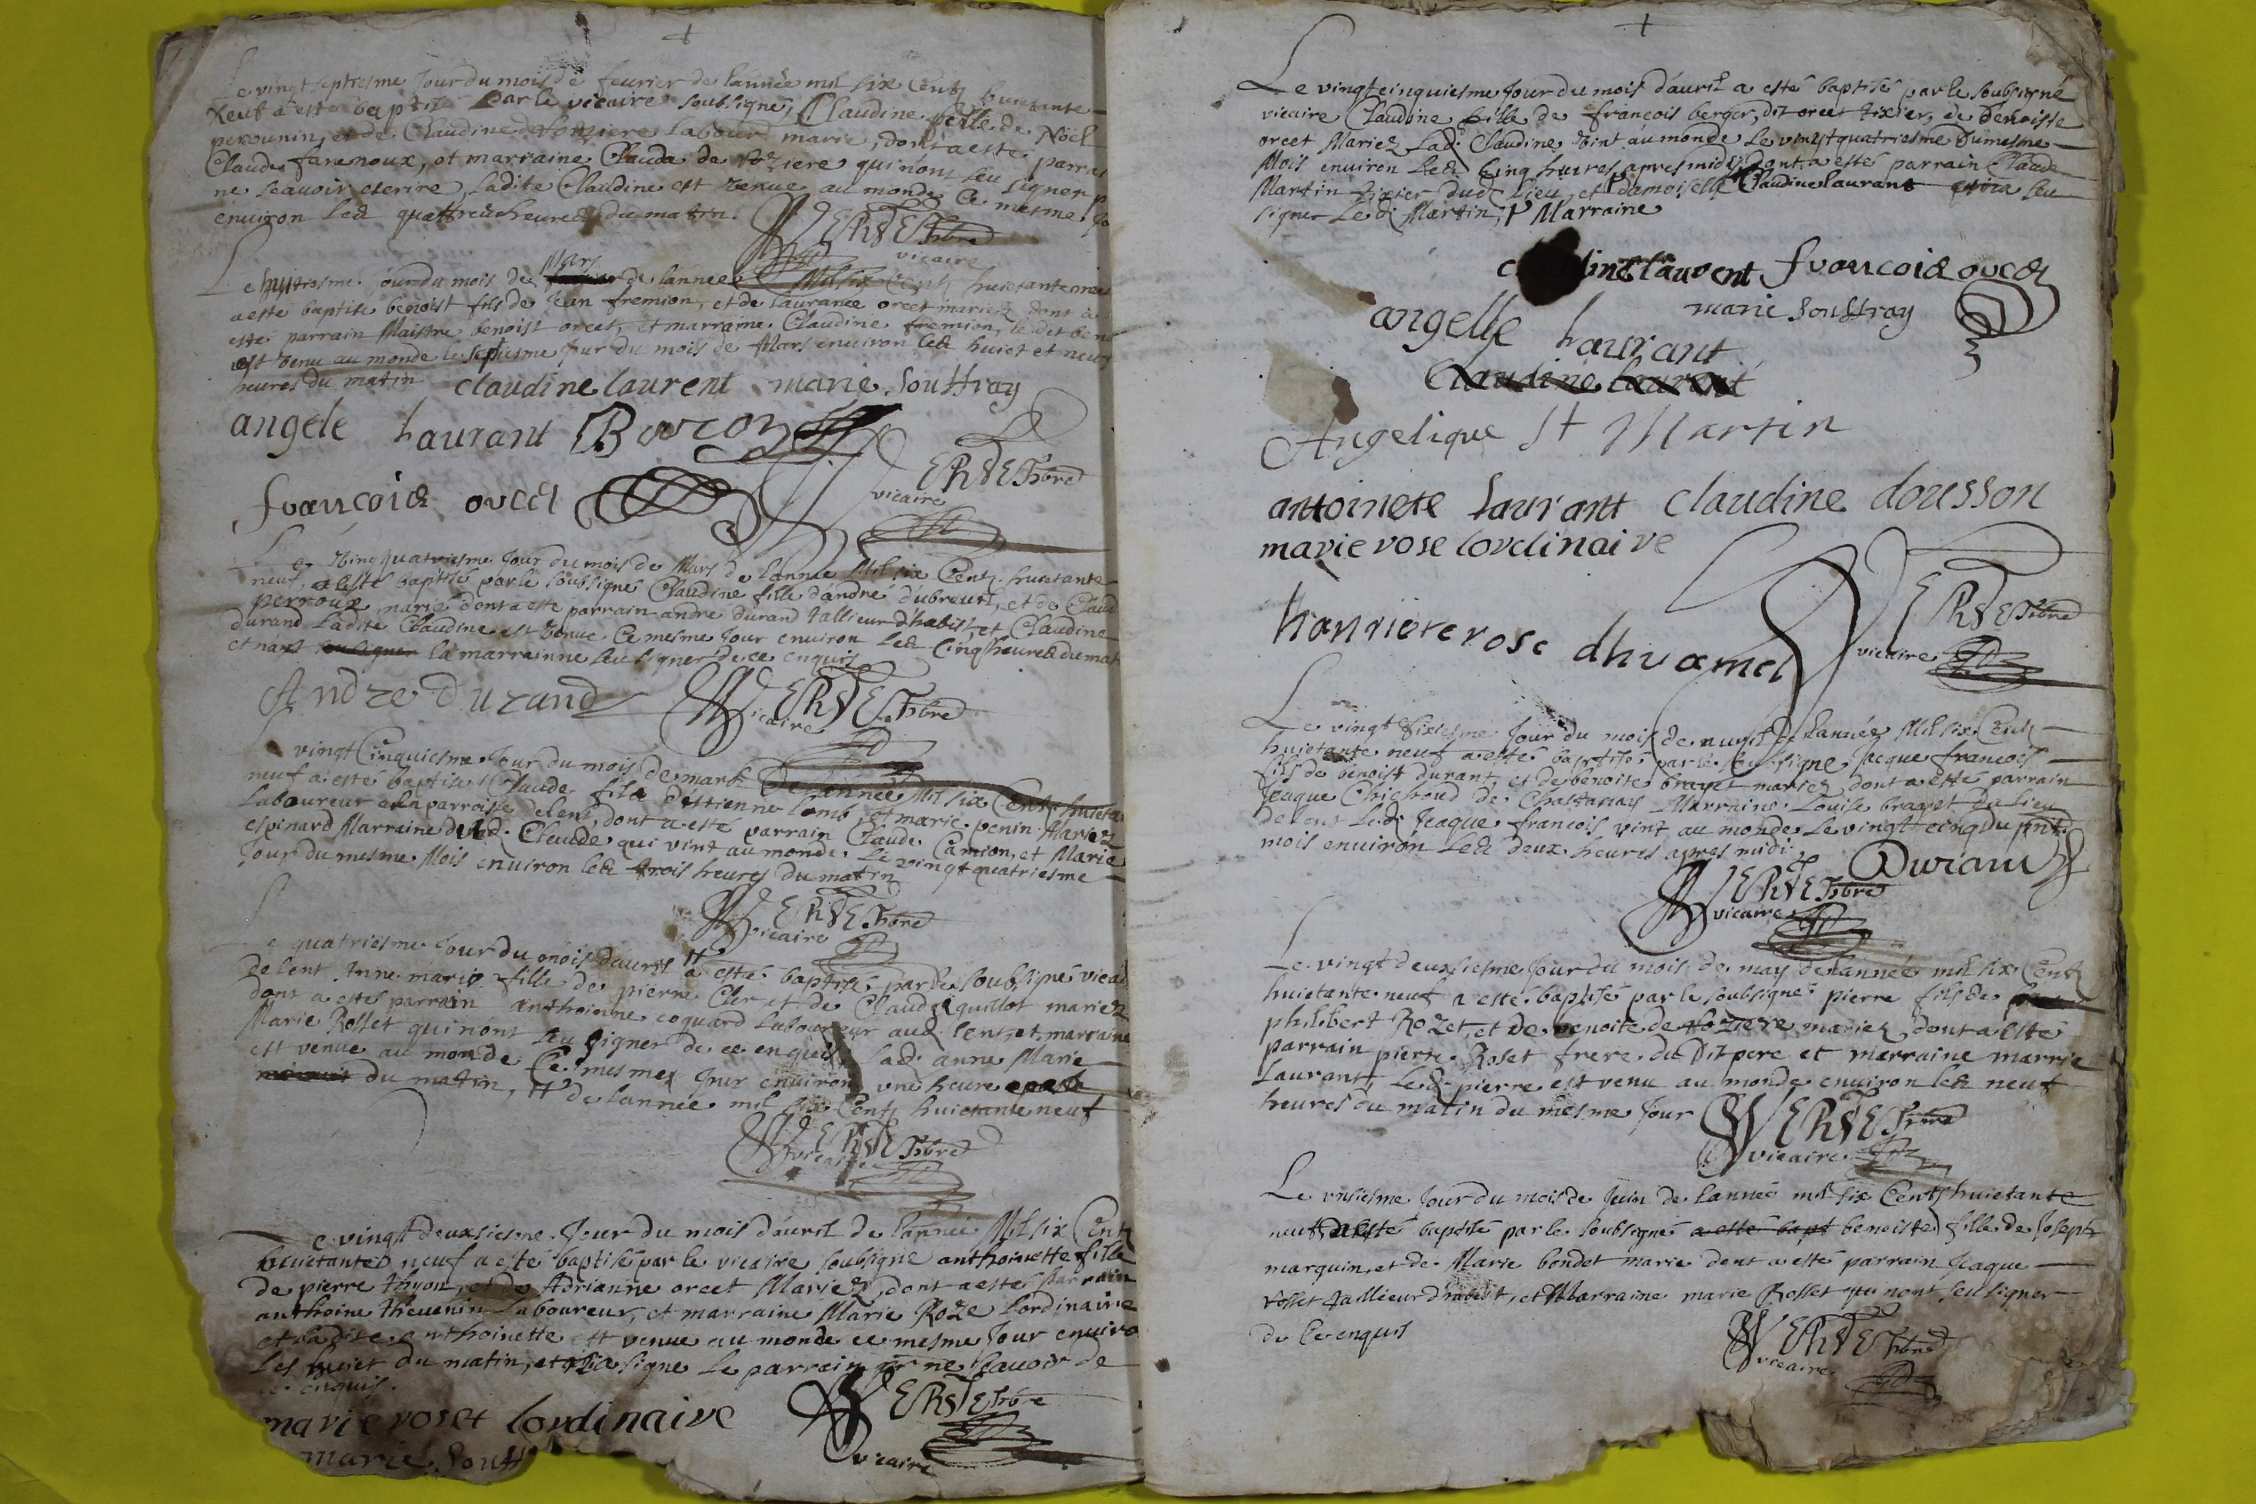 Le vingt septiesme Jour du mois de feurier de lannée mil six Centz huictante
neuf a esté baptisé par le vicaire soubsigné, Claudine fille de Noël
peronnin, et de Claudine labourd mariés, dont a esté parrain
Claude faremoux, et marraine Clauda de qui nont seu signer p
ne scauoir escrire, ladite Claudine est venue au monde Ce mesme Jo
enuiron les quattre heures du matin.
vicaire
Le huitiesme Jour du mois de Mars de lannée Mil six Centz huictante neuf
a esté baptisé benoist fils de Jean fremion, et de laurance orcet mariez dont a
esté parrain Maistre benoist orcet, et marraine Claudine fremion, ledit beno
est venu au monde le septiesme Jour du mois de Mars enuiron les huict et neuf
heures du matin
claudine laurent marie souttray
angele laurant
francois orcet
vicaire
Le vingtquatriesme Jour du mois de Mars de lannée Mil six Centz huictante
neuf, a esté baptisé par le soubsigné Claudine fille dandré dubreuil, et de Claud
perroux, mariés dont a esté parrain andre durand tallieur dhabist, et Claudine
durand ladite Claudine est venue Ce mesme Jour enuiron les Cinq heures du mat
et na la marrainne seu signer de ce enquis
Andre Durand
vicaire
vingt Cinquiesme Jour du mois de mars De lannée Mil six Centz huictan
neuf a esté baptisé Claude fils d'éstienne lomb, et marie penin Mariez
Laboureur a la parroisse de lent, dont a esté parrain Claude Camion, et Marie
espinard Marraine dud. Claude qui vint au monde le vingtquatriesme
Jour du mesme Mois enuiron les trois heures du matin
vicaire
Le quatriesme Jour du mois dauril a esté baptisé par le soubsigné vicai
de lent Anne marie fille de pierre Cler et de Claude quillot mariez
dont a esté parrain anthoinne coquard laboureur aud. lent, et marraine
Marie Rosset qui nont seu signer de ce enquis lad. anne Marie
est venue au monde Ce mesme Jour enuiron vne heure
du matin, de lannée mil six Centz huictante neuf
vicaire
Le vingt deuxiesme Jour du mois dauril de lannée Mil six Centz
huictante neuf a esté baptisé par le vicaire soubsigné anthoinette fille
de pierre thyon, et de Adrianne orcet Mariez, dont a esté parrain
anthoine theuenin Laboureur, et marraine Marie Roze lordinaire
et ladite anthoinette est venue au monde ce mesme Jour enuiro
les huict du matin, et signé le parrain ne scauoir de
ce enquis.
marie roset lordinaire
marie soutt
vicaire
Le vingtcinquiesme Jour du mois dauril a esté baptisé par le soubsigné
vicaire Claudine fille de francois berger, dit orcet tixier, de benoiste
orcet Mariez lad. Claudine vint au monde le vingtquatriesme Du mesme
Mois enuiron les Cinq heures apres midy dont a esté parrain Claude
Martin tixier dud. lieu, et damoiselle Claudine laurant seu
signer Led. Martin, Marraine
claudine laurent francois orcet
marie souttray
angelle laurant
Claudine laurant
Angelique St Martin
antoinete laurant claudine dousson
marie rose lordinaire
hanriete rose dhuamel
vicaire
Le vingt sixiesme Jour du mois de auril de lannée Mil six Centz
huictante neuf a esté baptisé par le soubsigne Jacque francois
fils de benoist durant, et de benoite brayet mariez dont a esté parrain
Jeaque Chichoud de Chastanay Marraine Louise brayet du lieu
de lent Led. Jeaque francois vint au monde Le vingt cinq du pnt
mois enuiron Les deux heures apres midi
Durand
vicaire
Le vingt deuxiesme Jour du mois de may de lannée mil six Centz
huictante neuf a esté baptisé par le soubsigné pierre fils de
philibert Rozet, et de benoite de mariez dont a esté
parrain pierre Roset frere du Dit pere et marraine marrie
Laurant, Led. pierre est venu au monde enuiron les neuf
heures du matin du mesme Jour
vicaire
Le vnsiesme Jour du mois de Juin de lannée mil six Centz huictante
neuf a esté baptisé par le soubsigné a esté bapt benoiste fille de Joseph
marquin, et de Marie bondet marie dont a esté parrain Jeaque
rosset taillieur dhabit, et Marraine marie Rosset qui nont seu signer
de Ce enquis
vicaire